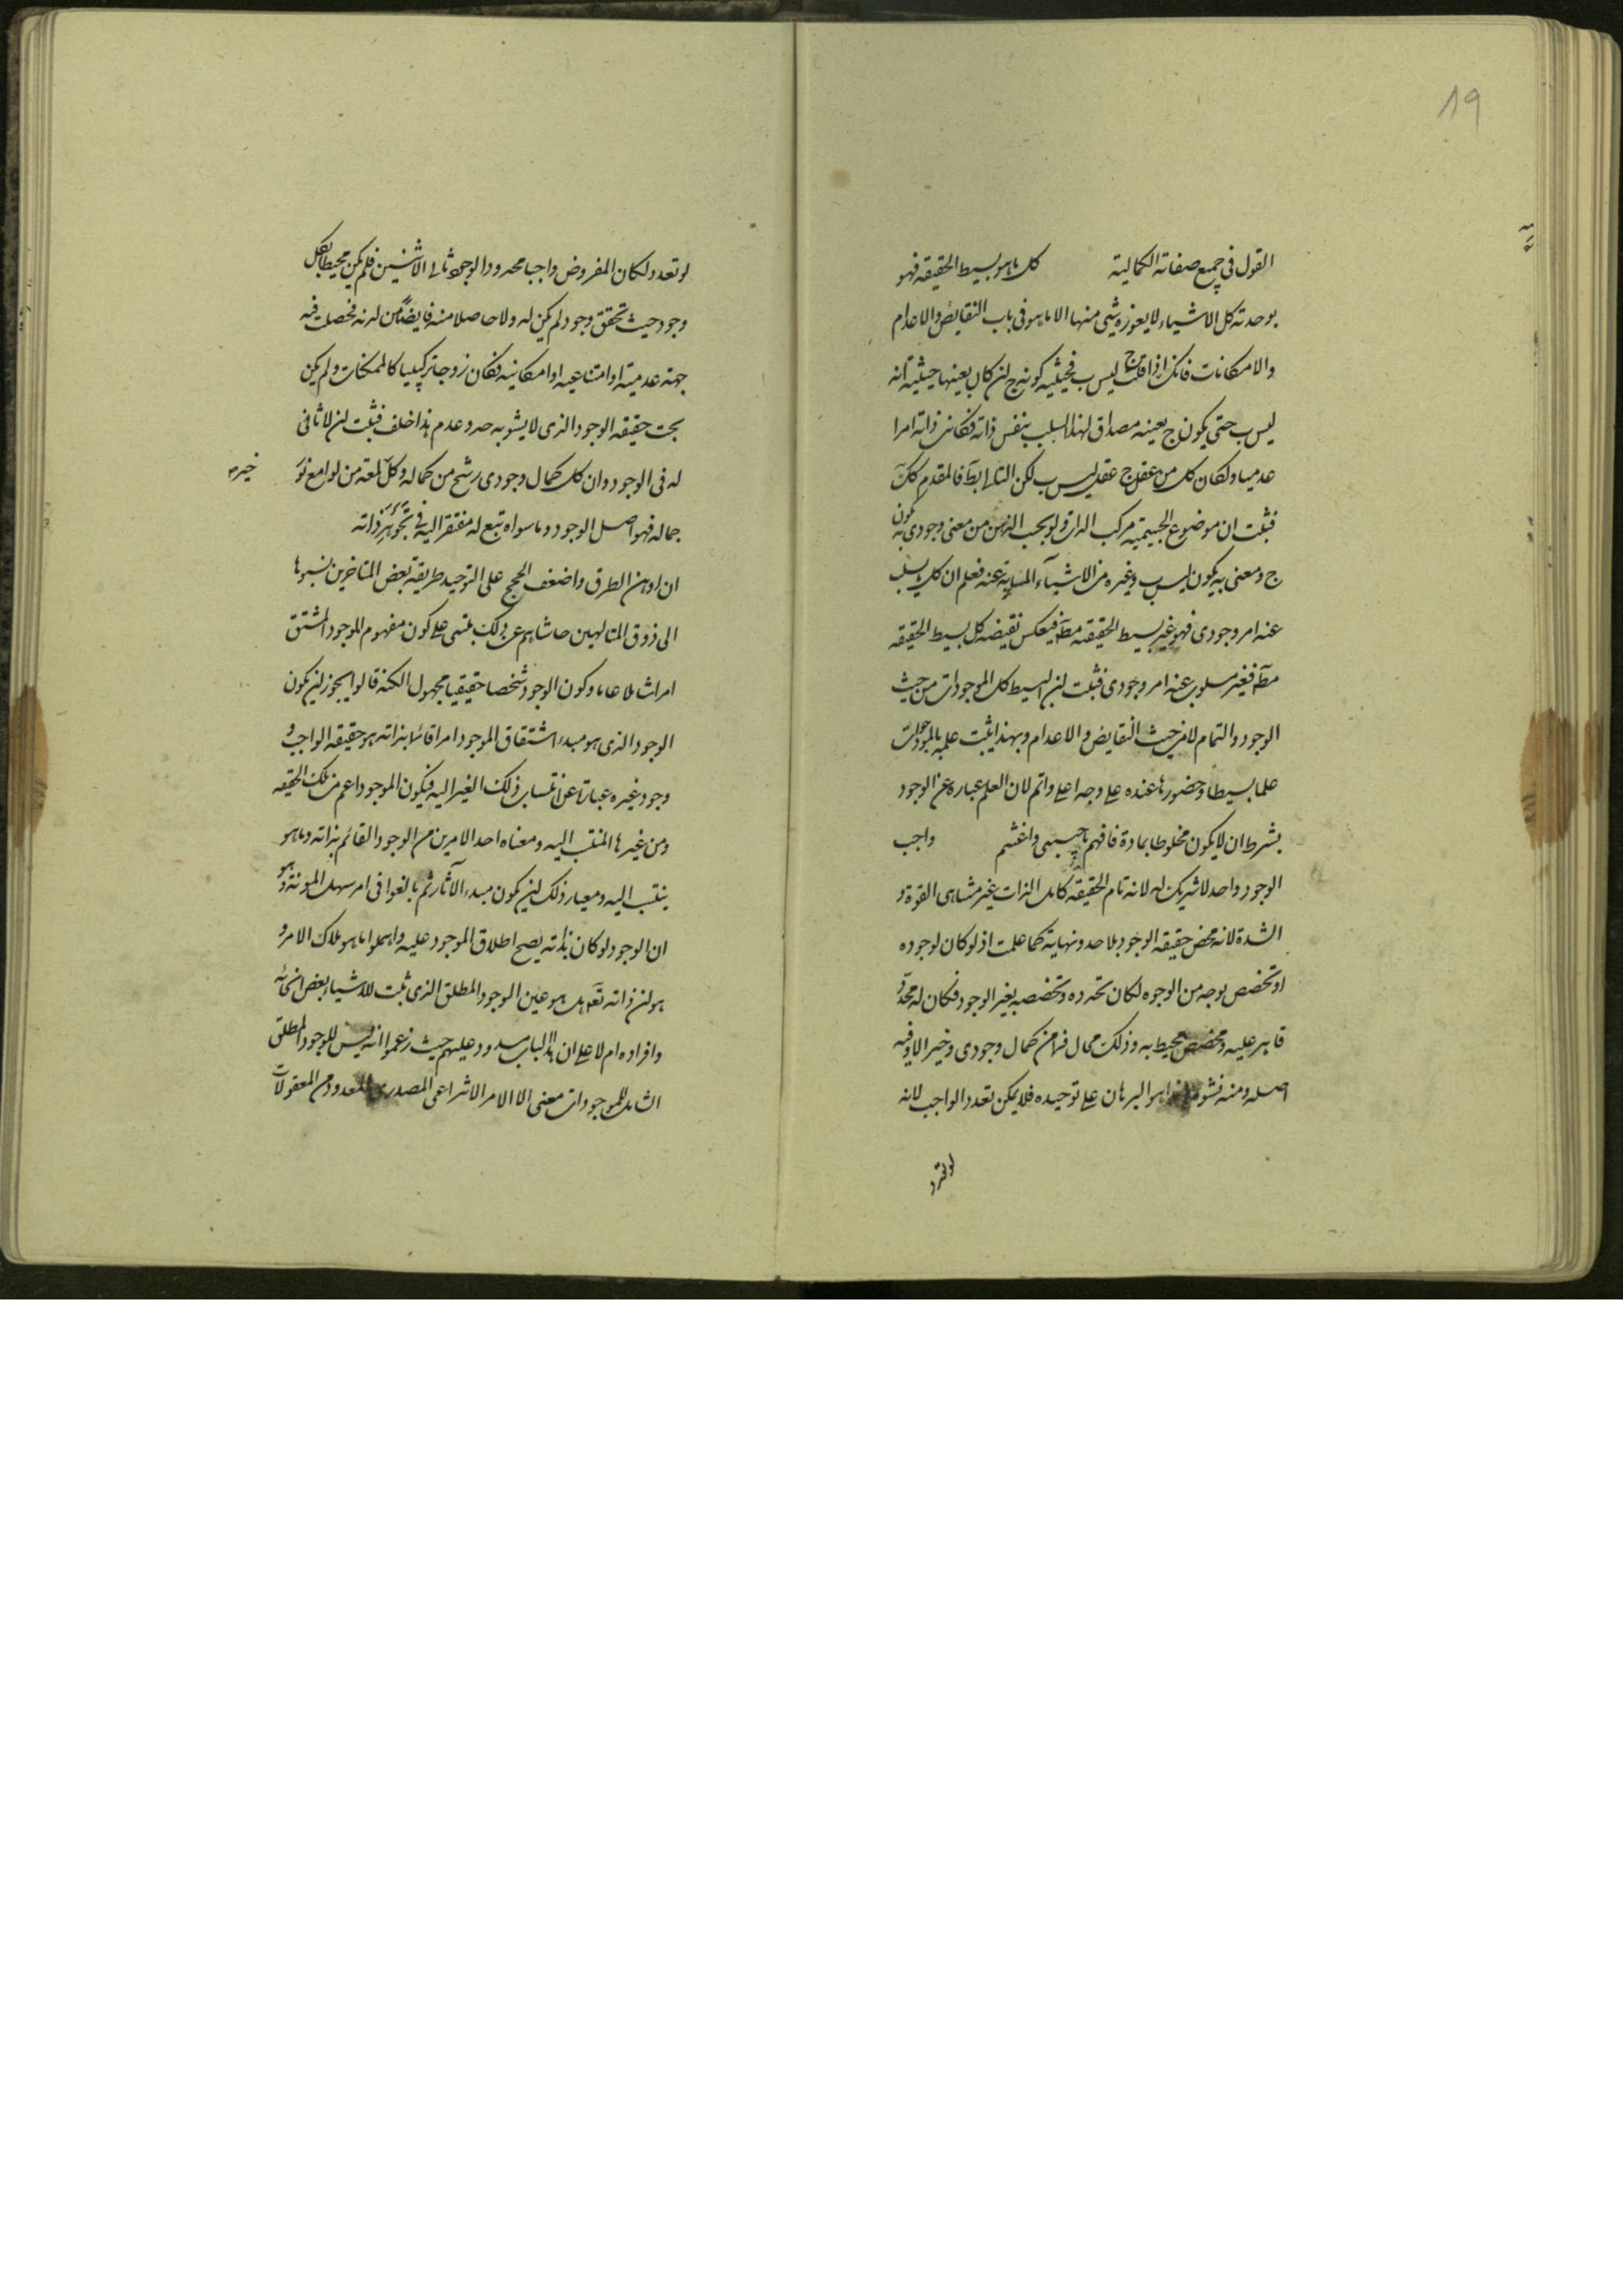 19
القول فى جميع صفاته الكمالية كل ما هو بسيط الحقيقه فهو
بوحدته كل الاشياء لا يعوزه شيئ منها الا ما هو فى باب النقايص والاعدام
والامكانات فانك اذا قلت ج ليس ب فحيثيه كونه ج لن كان بعينها حيثية انه
ليس ب حتى يكون ج بعينه مصداق لهذا السلب بنفس ذاته فكانت ذاته امرا
عدميا ولكان كل من عقل ج عقل ليس ب لكن التالى بط فالمقدم كك
فثبت ان موضوع الجيمية مركب الذات ولو بحسب الذهن من معنى وجودى به يكون
ج ومعنى به يكون ليس ب وغيره من الاشياء المسلوبة عنه فعلم ان كل ما يسلب
عنه امر وجودى فهو غير بسيط الحقيقه مط فينعكس نقيضه كل بسيط الحقيقه
مط فغير مسلوب عنه امر وجودى فثبت لن البسيط كل الموجودات من حيث
الوجود والتمام لا من حيث النقايص والاعدام وبهذا يثبت علمه بالموجودات
علما بسيطا وحضورها عنده على وجه اعلى واتم لان العلم عباره عن الوجود
بشرط ان لا يكون مخلوطا بمادة فافهم يا حبيبى واغتنم واجب
الوجود واحد لا شريك له لانه تام الحقيقه كامل الذات غير متناهى القوة و
الشدة لانه محض حقيقه الوجود بلا حد ونهاية كما علمت اذ لو كان لوجوده
او تخصص بوجه من الوجوه لكان تحدده وتخصصه بغير الوجود فكان له محدد
قاهر عليه ومخصص محيط به وذلك محال فما من كمال وجودى وخير الا وفيه
اصله ومنه نشوه وهذا هو البرهان على توحيده فلا يمكن تعدد الواجب لانه
لو تعدد
لو تعدد لكان المفروض واجبا محدود الوجود ثانى الاثنين فلم يكن محيطا بكل
وجود حيث تحقق وجود لم يكن له ولا حاصلا منه فايضا من لدنه فحصلت فيه
جهة عدمية او امتناعيه او امكانيه فكان زوجا تركيبيا كالممكنات ولم يكن
بحت حقيقه الوجود الذى لا يشوبه حد وعدم هذا خلف فثبت لن لا ثانى
له فى الوجود وان كل كمال وجودى رشح من كماله وكل لمعة من لوامع نور
خير
جماله فهو اصل الوجود وما سواه تبع له مفتقر اليه فى تجوهر ذاته
ان اوهن الطرق واضعف الحجج على التوحيد طريقة بعض المتاخرين نسبوها
الى ذوق المتالهين حاشاهم عن ذلك يبتنى على كون مفهوم الموجود المشتق
امرا شاملا عاما وكون الوجود شخصا حقيقيا مجهول الكنه قالوا يجوز لن يكون
الوجود الذى هو مبدء اشتقاق الموجود امرا قائما بذاته هو حقيقه الواجب و
وجود غيره عبارة عن انتساب ذلك الغير اليه فيكون الموجود اعم من تلك الحقيقه
ومن غيرها المنتسب اليه ومعناه احد الامرين من الوجود القائم بذاته وما هو
ينتسب اليه ومعيار ذلك لن يكون مبدء الآثار ثم بالغوا فى امر سهل المونة وهو
ان الوجود لو كان بذاته يصح اطلاق الموجود عليه واهملوا ما هو ملاك الامر و
هو لن ذاته تعم هل هو عين الوجود المطلق الذى ثبت للاشياء بعض انحائه
وافراده ام لا على ان هذا الباب مسدود عليهم حيث زعموا انه ليس للوجود المطلق
الشامل للموجودات معنى الا الامر الانتزاعى المصدرى المعدود من المعقولات